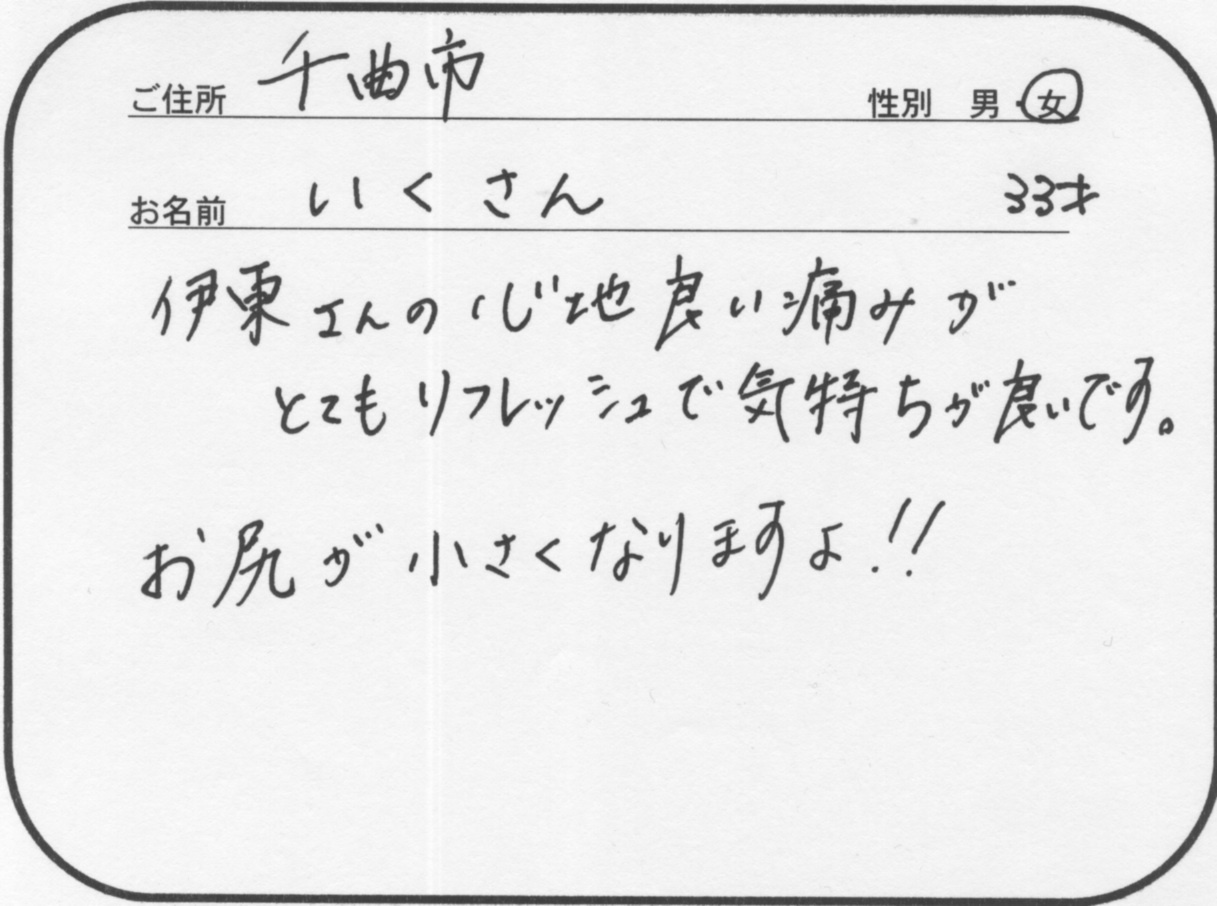 ご住所 千曲市 性別 男・女
お名前 いくさん 33才
伊東さんの心地良い痛みが
とてもリフレッシュで気持ちが良いです。
お尻が小さくなりますよ!!